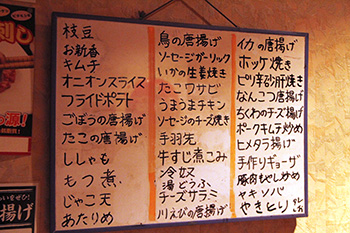 枝豆
お新香
キムチ
オニオンスライス
フライドポテト
ごぼうの唐揚げ
たこの唐揚げ
ししゃも
もつ煮
じゃこ天
あたりめ
鳥の唐揚げ
ソーセージガーリック
いかの生姜焼き
たこワサビ
うまうまチキン
ソーセージのチーズ焼き
手羽先
牛すじ煮こみ
冷奴
湯どうふ
チーズサラミ
川えびの唐揚げ
イカの唐揚げ
ホッケ焼き
ピリ辛砂肝焼き
なんこつ唐揚げ
ちくわのチーズ揚げ
ポークキムチ炒め
ヒメタラ揚げ
手作りギョーザ
豚肉もやし炒め
ヤキソバ
やきとり
揚げ